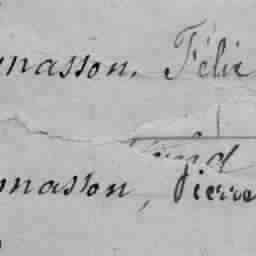 masson, Félix
masson, Pierre